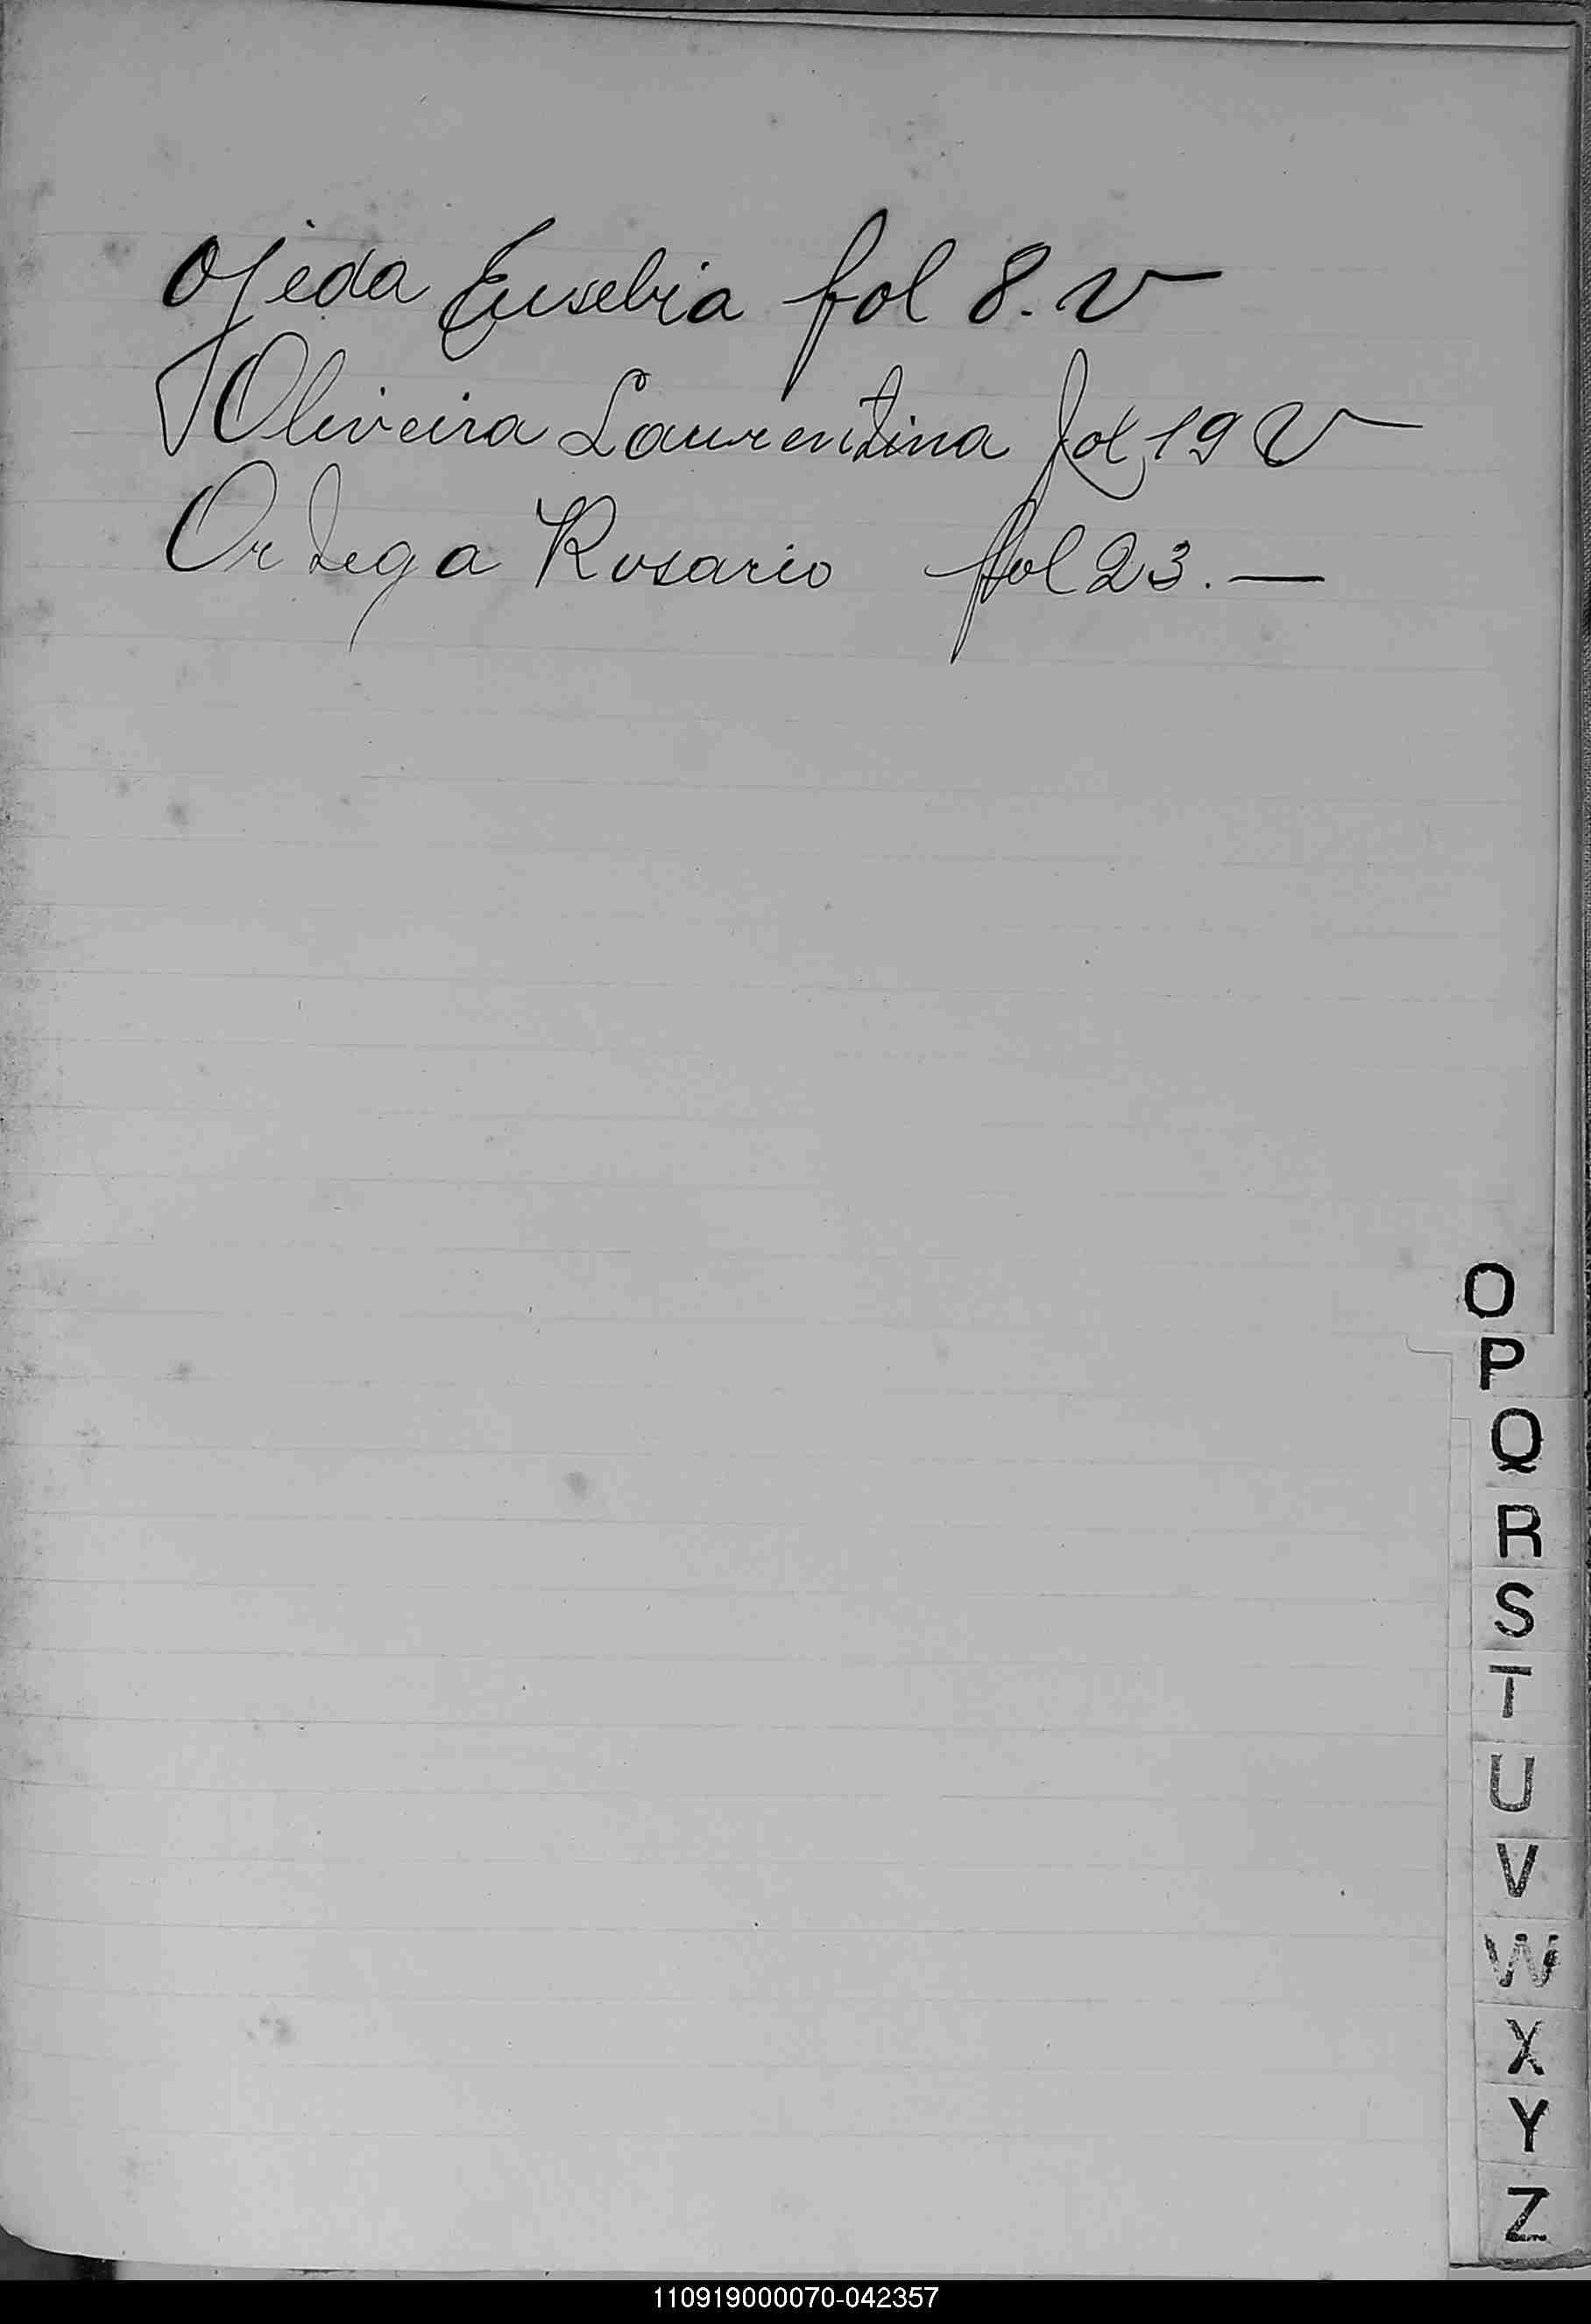 Ojeda Eusebia fol 8. v
Oliveira Laurentina fol 19 v
Ortega Rosario fol 23. —
O
P
Q
R
S
T
U
V
W
X
Y
Z
110919000070-042357